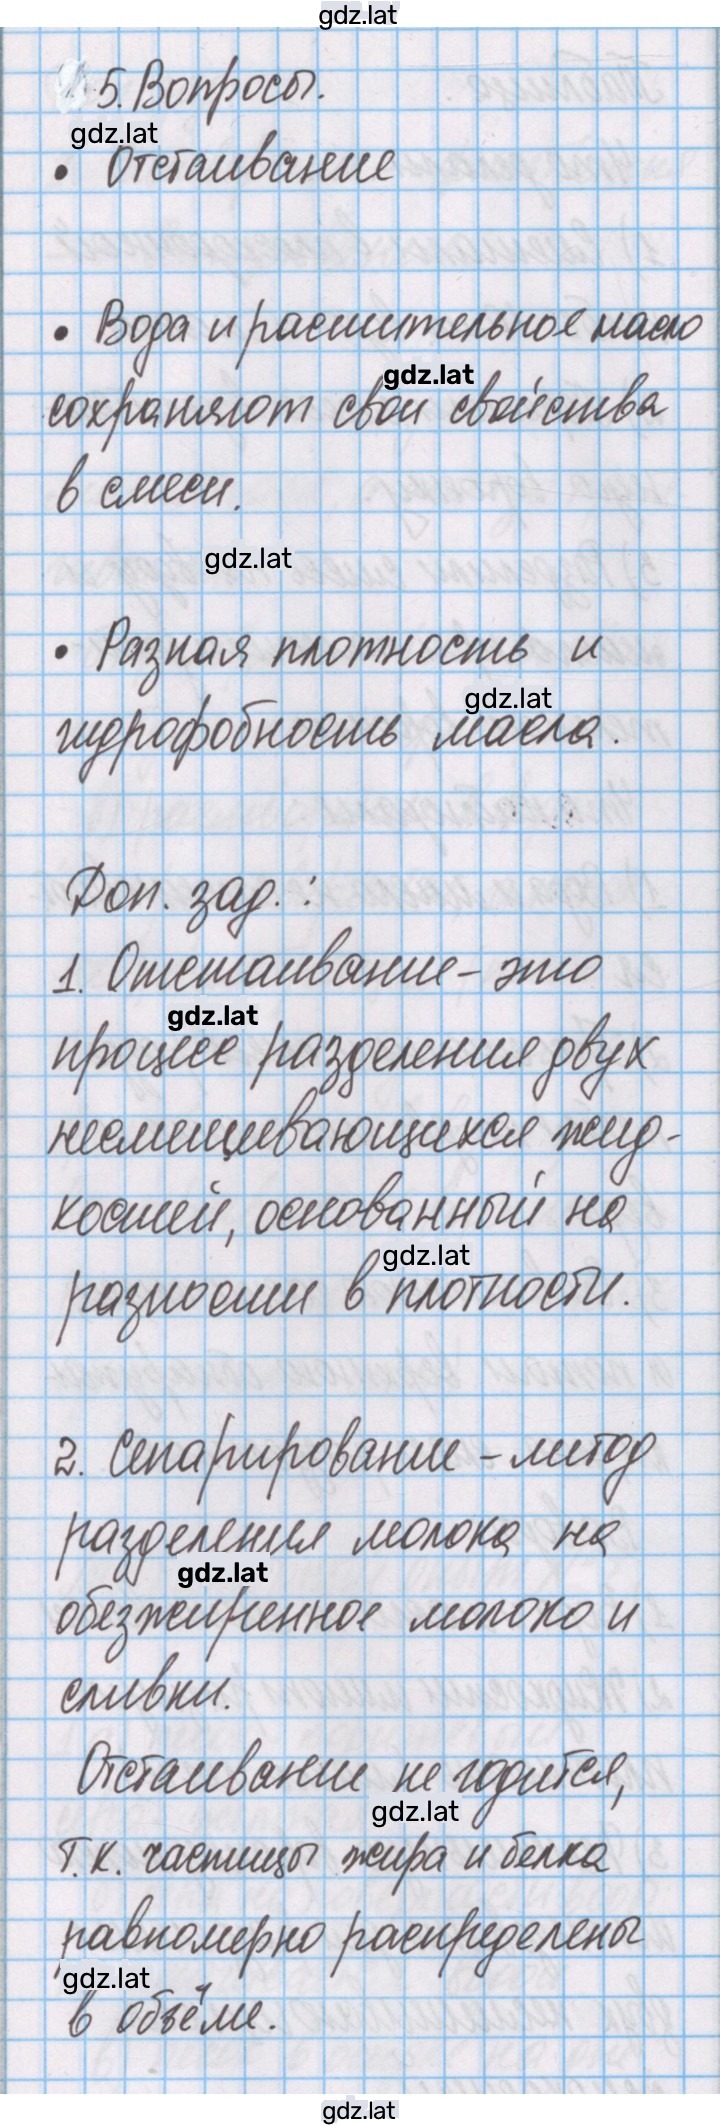 gdz.lat
5. Вопросы.
gdz.lat
• Отстаивание
• Вода и растительное масло
gdz.lat
сохраняют свои свойства
в смеси.
gdz.lat
• Разная плотность и
gdz.lat
гидрофобность масла.
Доп. зад.:
1. Отстаивание – это
gdz.lat
процесс разделения двух
несмешивающихся жид-
костей, основанный на
gdz.lat
разности в плотности.
2. Сепарирование – метод
разделения молока на
gdz.lat
обезжиренное молоко и
сливки.
Отстаивание не годится,
gdz.lat
т.к. частицы жира и белка
равномерно распределены
gdz.lat
в объёме.
gdz.lat